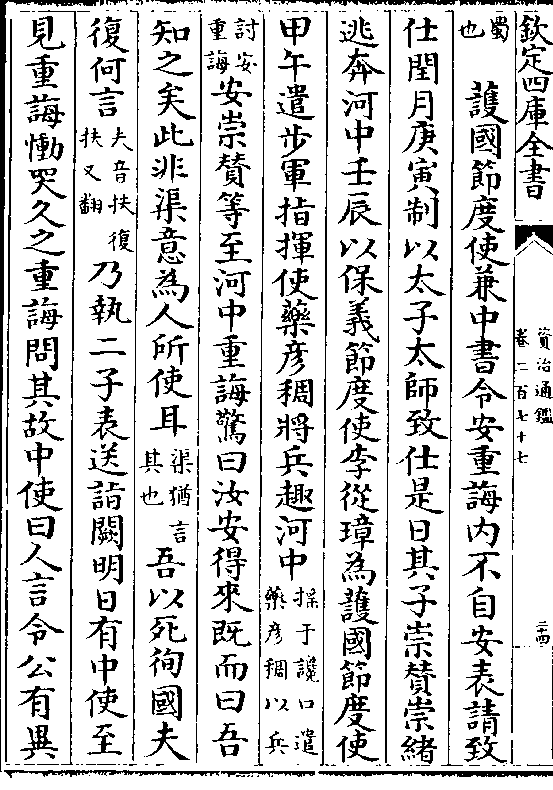 欽定四庫全書
資治通鑑
卷二百七十七
二十四
蜀也 護國節度使兼中書令安重誨内不自安表請致
仕閏月庚寅制以太子太師致仕是日其子崇贊崇緒
逃奔河中壬辰以保義節度使李從璋為護國節度使
甲午遣步軍指揮使藥彦稠將兵趣河中揺于讒口遣藥彦稠以兵
討安重誨安崇贊等至河中重誨驚曰汝安得來既而曰吾
知之矣此非渠意為人所使耳渠猶言其也吾以死徇國夫
復何言夫音扶復扶又翻乃執二子表送詣闕明日有中使至
見重誨慟哭久之重誨問其故中使曰人言令公有異